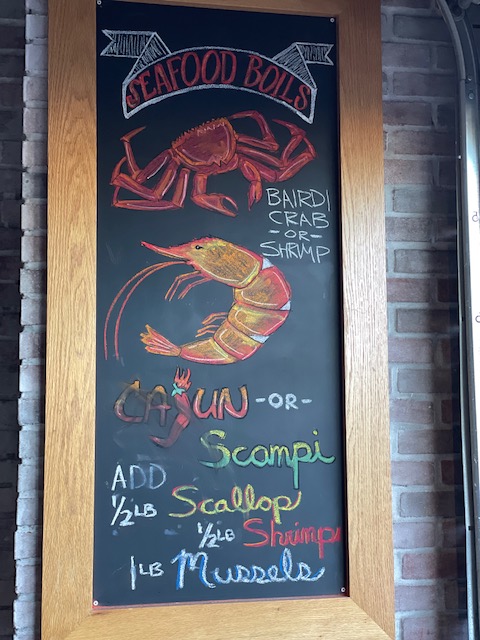 SEAFOOD BOILS
BAIRDI
CRAB
-OR-
SHRIMP
CAJUN -OR-
Scampi
ADD
1/2 LB Scallop
1/2 LB Shrimp
1 LB Mussels